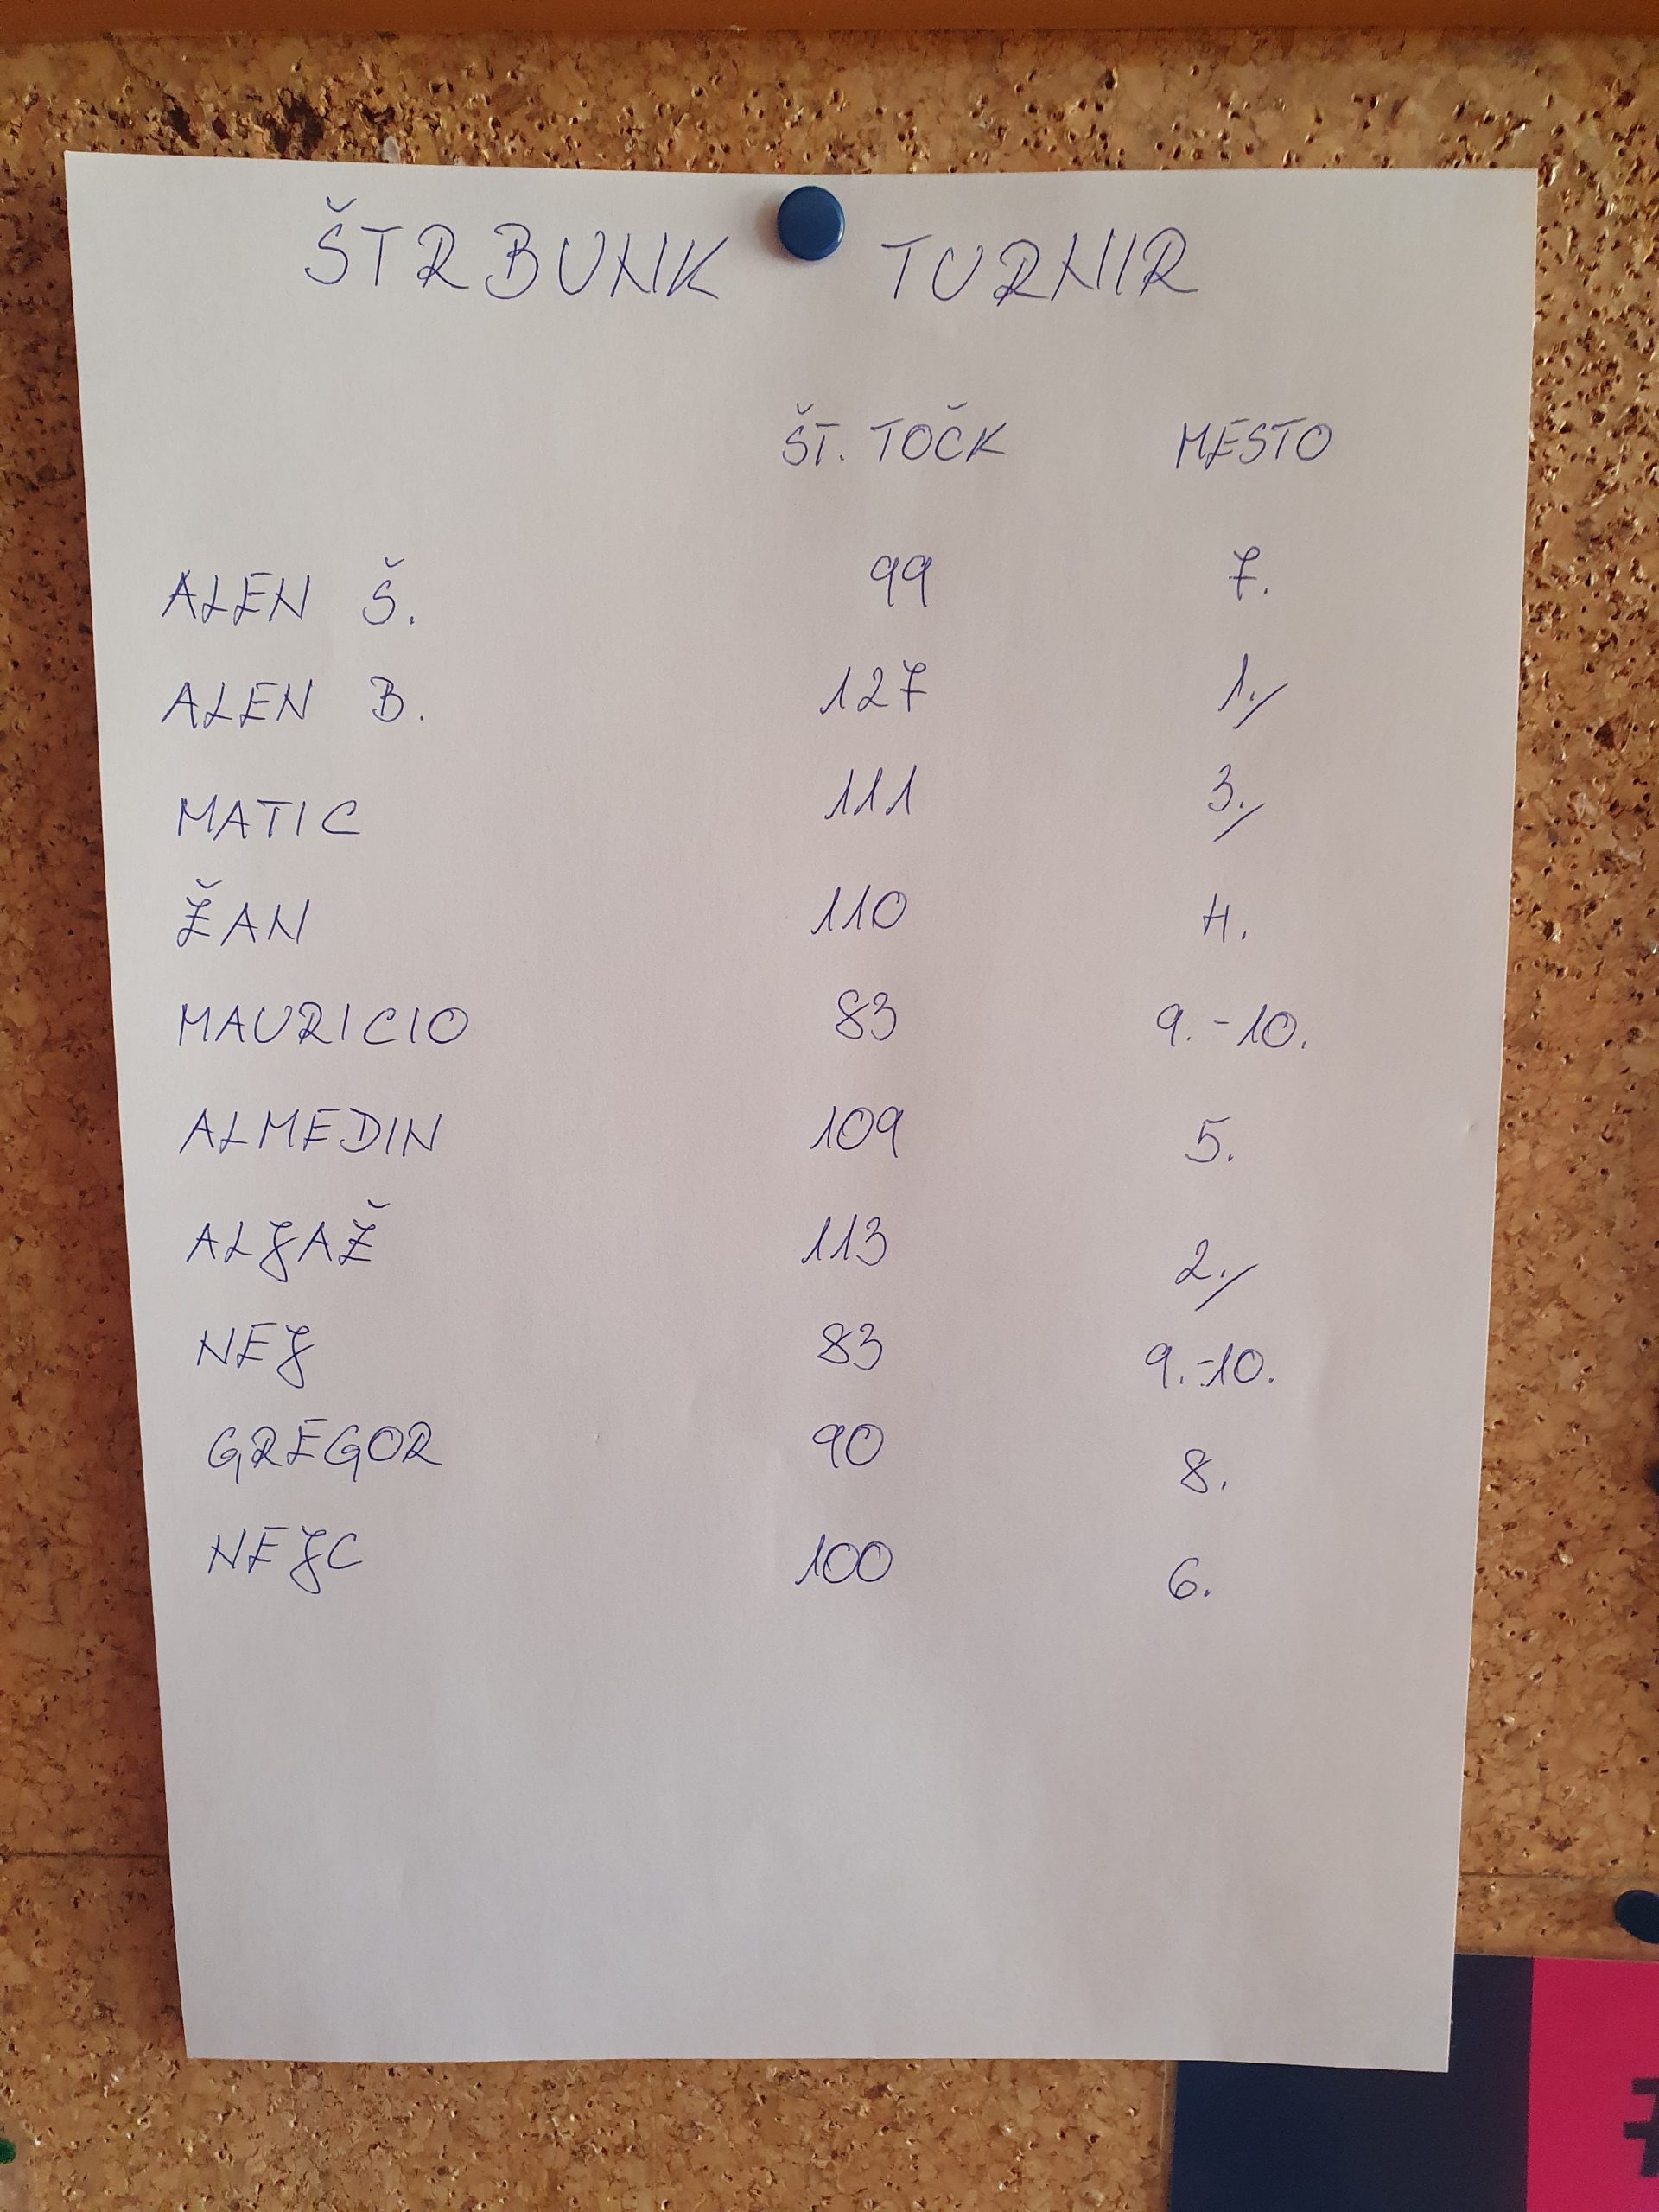 ŠTRBUNK TURNIR
ŠT. TOČK MESTO
ALEN Š. 99 7.
ALEN B. 127 1./
MATIC 111 3./
ŽAN 110 4.
MAURICIO 83 9.-10.
ALMEDIN 109 5.
ALJAŽ 113 2./
NEJ 83 9.-10.
GREGOR 90 8.
NEJC 100 6.